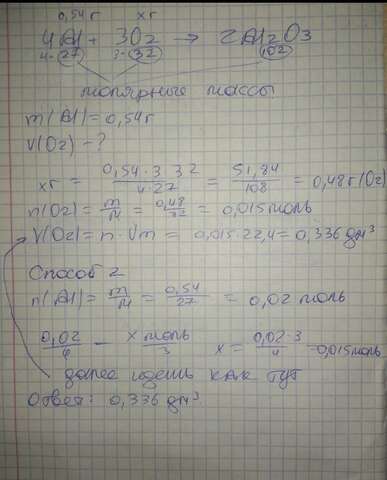 0,54г xг
4Al + 3O2 → 2Al2O3
4·27 3·32 102
молярные массы
m(Al)=0,54г
V(O2) - ?
xг = 0,54·3·32 / 4·27 = 51,84 / 108 = 0,48г(O2)
n(O2)= m/M = 0,48/32 = 0,015моль
V(O2)= n·Vm = 0,015·22,4= 0,336 дм³
Способ 2
n(Al)= m/M = 0,54/27 = 0,02 моль
0,02/4 - x моль/3 x = 0,02·3/4 =0,015моль
далее идёшь как тут
Ответ: 0,336 дм³